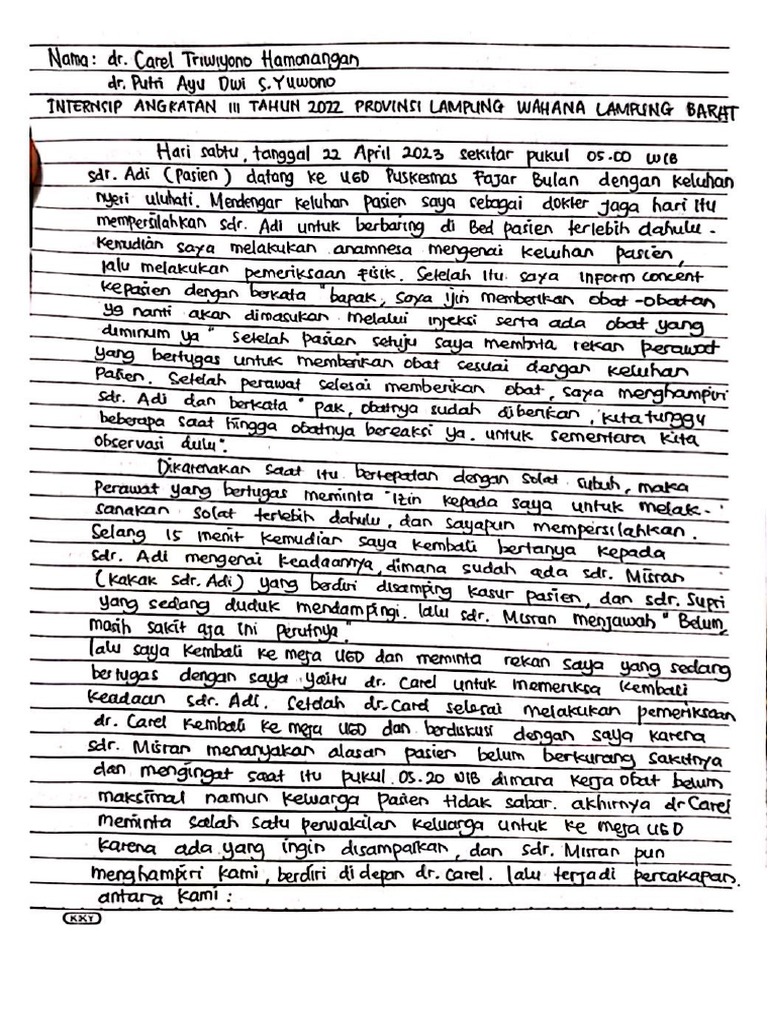 Nama: dr. Carel Triwiyono Hamonangan
dr. Putri Ayu Dwi S. Yuwono
INTERNSIP ANGKATAN III TAHUN 2022 PROVINSI LAMPUNG WAHANA LAMPUNG BARAT
Hari sabtu, tanggal 22 April 2023 sekitar pukul 05.00 WIB
sdr. Adi (Pasien) datang ke UGD Puskesmas Fajar Bulan dengan keluhan
nyeri uluhati. Mendengar keluhan pasien saya sebagai dokter jaga hari itu
mempersilahkan sdr. Adi untuk berbaring di Bed pasien terlebih dahulu.
Kemudian saya melakukan anamnesa mengenai keluhan pasien,
lalu melakukan pemeriksaan fisik. Setelah itu saya inform concent
kepasien dengan berkata "bapak, saya ijin memberikan obat-obatan
yg nanti akan dimasukan melalui injeksi serta ada obat yang
diminum ya" Setelah pasien setuju saya meminta rekan perawat
yang bertugas untuk memberikan obat sesuai dengan keluhan
Pasien. Setelah perawat selesai memberikan obat, saya menghampiri
sdr. Adi dan berkata "pak, obatnya sudah diberikan, kita tunggu
beberapa saat hingga obatnya bereaksi ya. untuk sementara kita
observasi dulu".
Dikarenakan saat itu bertepatan dengan solat subuh, maka
Perawat yang bertugas meminta izin kepada saya untuk melak-
sanakan solat terlebih dahulu, dan sayapun mempersilahkan.
Selang 15 menit kemudian saya kembali bertanya kepada
sdr. Adi mengenai keadaannya, dimana sudah ada sdr. Misran
(kakak sdr. Adi) yang berdiri disamping kasur pasien, dan sdr. Supri
yang sedang duduk mendampingi. lalu sdr. Misran menjawab "Belum,
masih sakit aja ini perutnya"
lalu saya kembali ke meja UGD dan meminta rekan saya yang sedang
bertugas dengan saya yaitu dr. Carel untuk memeriksa kembali
keadaan sdr. Adi. Setelah dr. Carel selesai melakukan pemeriksaan
dr. Carel kembali ke meja UGD dan berdiskusi dengan saya karena
sdr. Misran menanyakan alasan pasien belum berkurang sakitnya
dan mengingat saat itu pukul 05.20 WIB dimana kerja obat belum
maksimal namun keluarga pasien tidak sabar. akhirnya dr Carel
meminta salah satu perwakilan keluarga untuk ke meja UGD
karena ada yang ingin disampaikan, dan sdr. Misran pun
menghampiri kami, berdiri di depan dr. Carel. lalu terjadi percakapan
antara kami:
KKY